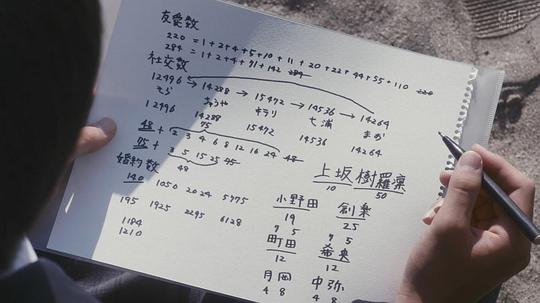 友愛数
220 = 1+2+4+5+10+11+20+22+44+55+110 220
284 = 1+2+4+71+142 284
社交数
12496 → 14288 → 15472 → 14536 → 14264
そら ちゅうや キラリ 七浦 まか
12496 14288 15472 14536 14264
75
48 + 2 3 4 6 8 12 16 24 48
75 + 3 5 15 25 75
48
婚約数
140 1050 2024 5775
195 1925 2295 6128
1184
1210
上坂 樹羅凜
10 50
小野田 創楽
19 25
7 5 7 5
町田 希央
12 12
月岡 中弥
4 8 4 8